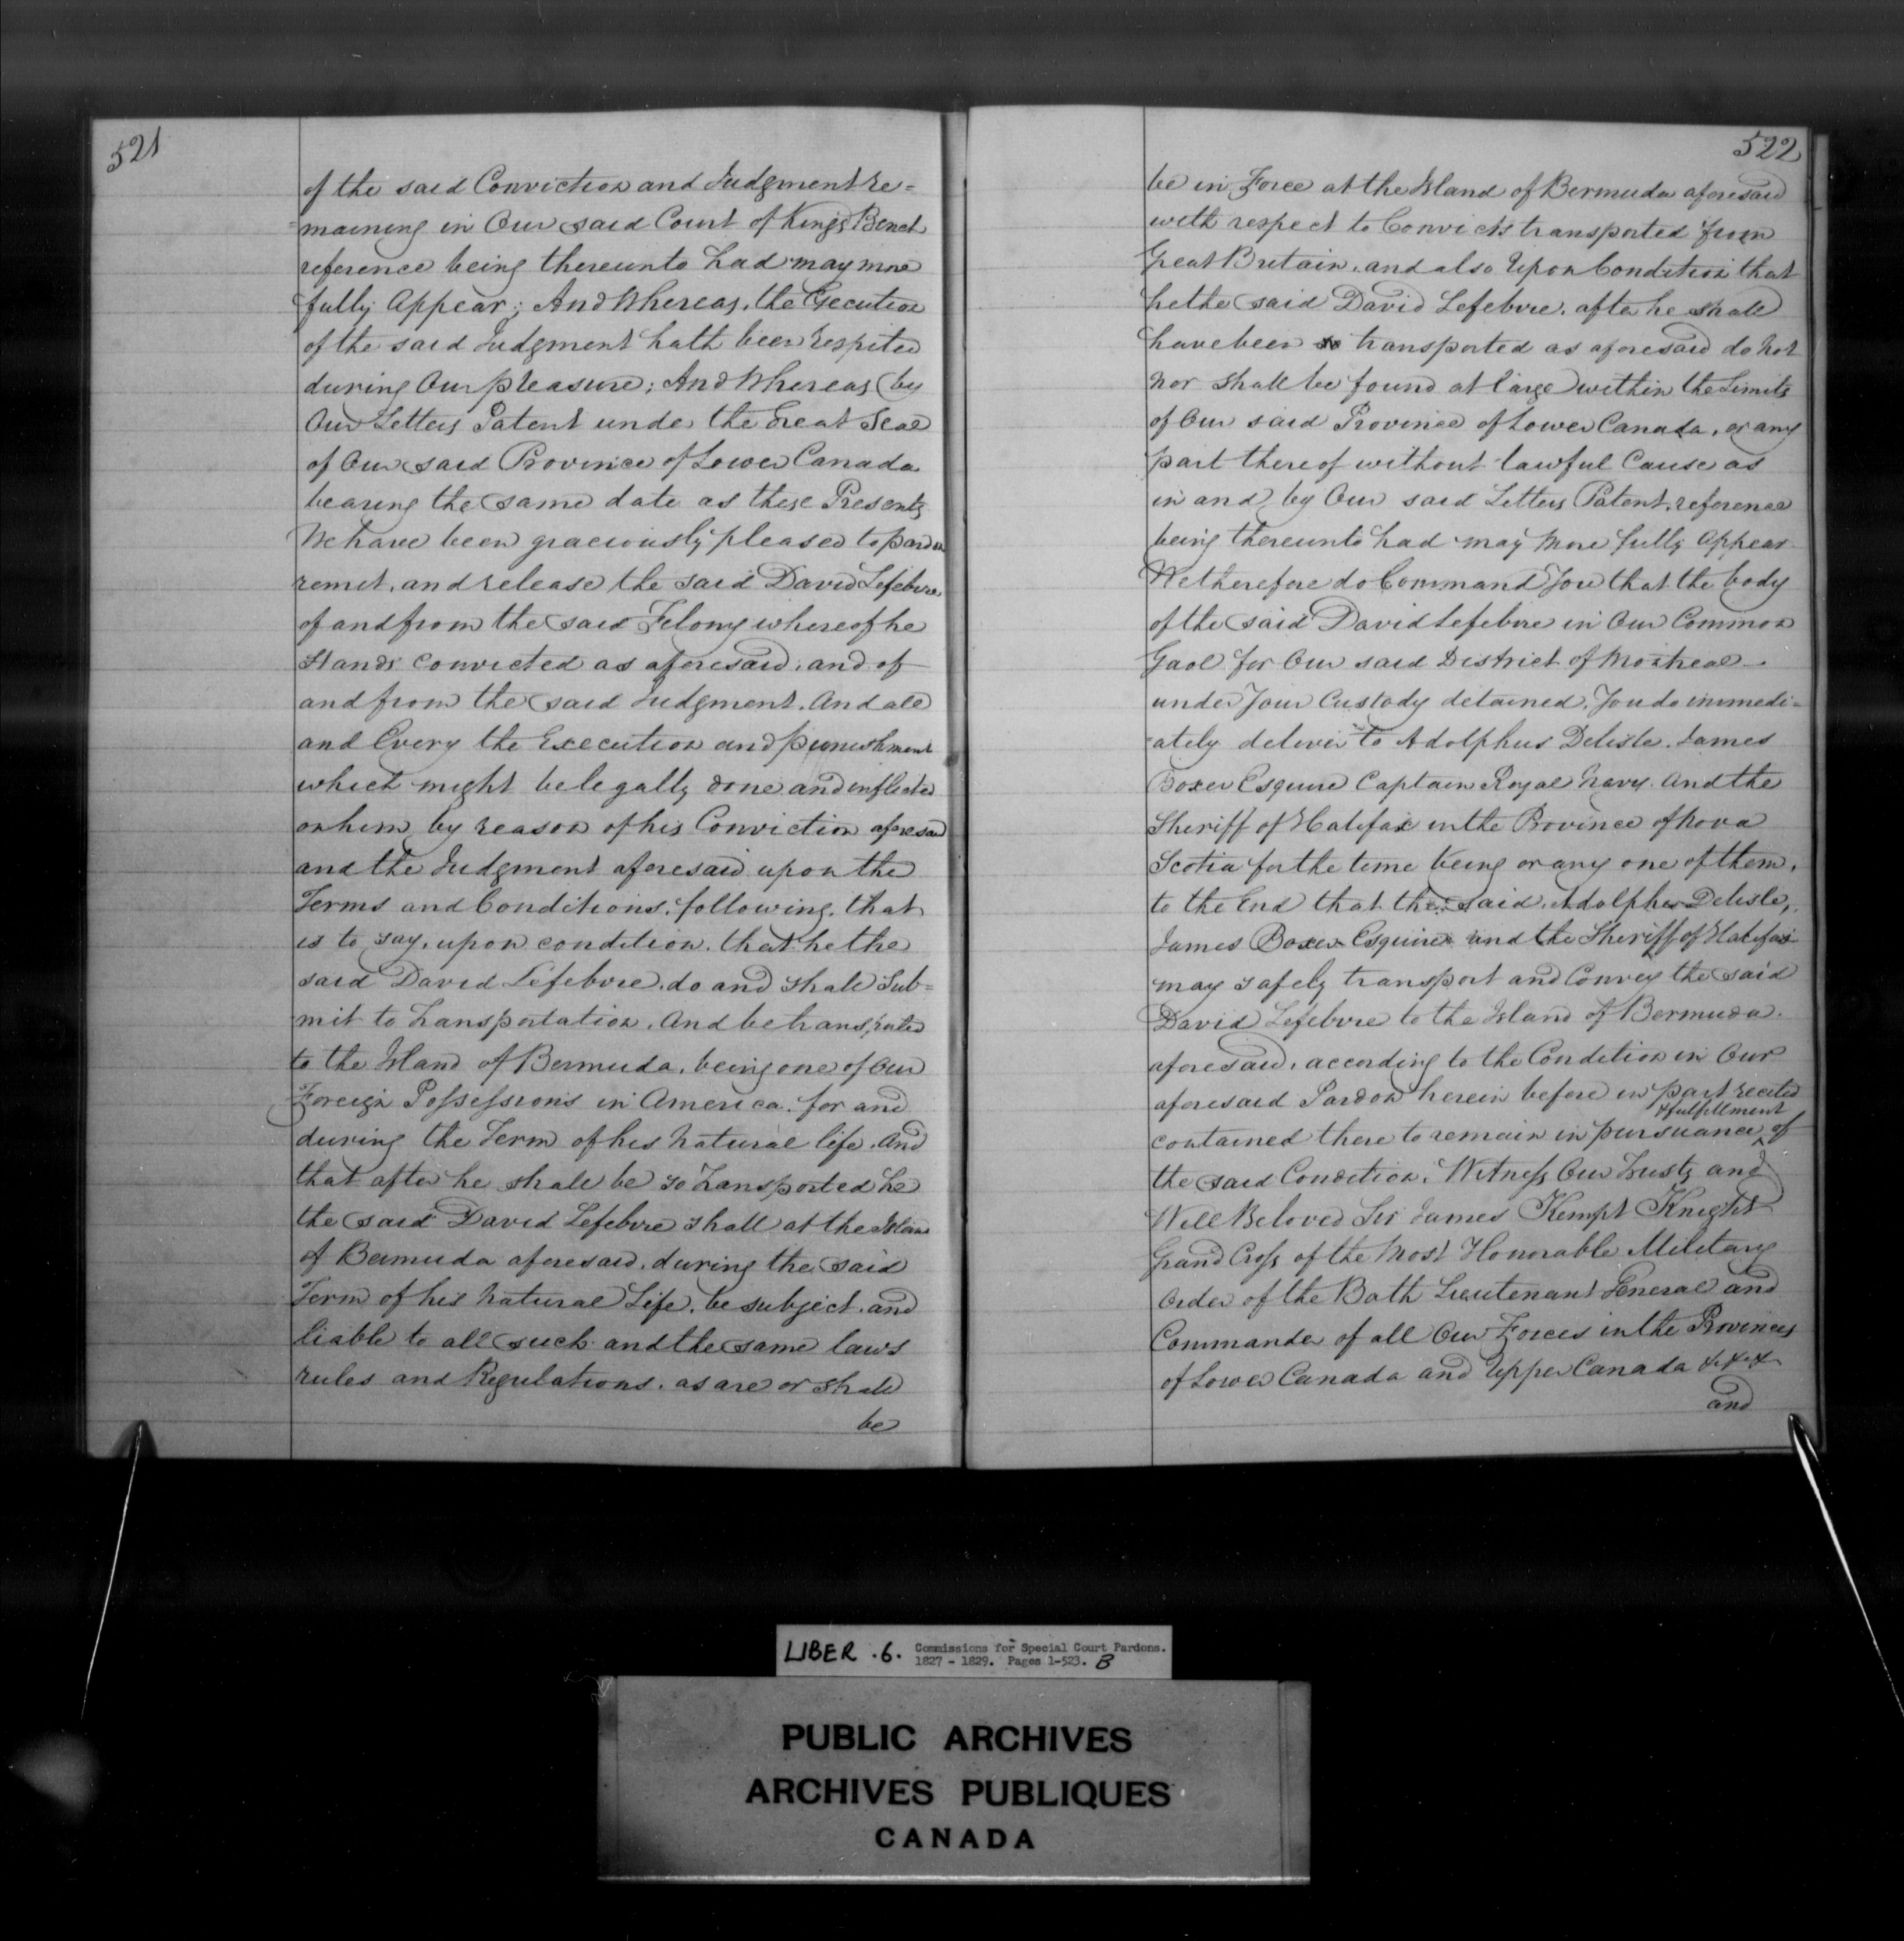 521
of the said Conviction and Judgment re=
=maining in Our said Court of Kings Bench
reference being thereunto had may more
fully Appear; And Whereas, the Execution
of the said Judgment hath been respited
during Our pleasure; And Whereas by
Our Letters Patent under the Great Seal
of Our said Province of Lower Canada
bearing the same date as these Presents
We have been graciously pleased to pardon
remit, and release the said David Lefebvre
of and from the said Felony whereof he
Stands convicted as aforesaid, and of
and from the said Judgment. And all
and Every the Execution and punishment
which might be legally done and inflicted
on him by reason of his Conviction aforesaid
and the Judgment aforesaid upon the
Terms and Conditions, following, that
is to say, upon condition, that he the
said David Lefebvre, do and shall Sub=
mit to Transportation, And be transported
to the Island of Bermuda, being one of Our
Foreign Possessions in America, for and
during the Term of his Natural life, And
that after he shall be so Transported he
the said David Lefebvre shall at the Island
of Bermuda aforesaid, during the said
Term of his Natural Life, be subject and
liable to all such and the same laws
rules and Regulations, as are or shall
be
522
be in Force at the Island of Bermuda aforesaid
with respect to Convicts transported from
Great Britain, and also Upon Condition that
he the said David Lefebvre, after he shall
have been so transported as aforesaid do not
nor shall be found at large within the Limits
of Our said Province of Lower Canada, or any
part thereof without lawful Cause as
in and by Our said Letters Patent, reference
being thereunto had may more fully Appear
We therefore do Command You that the body
of the said David Lefebvre in Our Common
Gaol for Our said District of Montreal
under Your Custody detained, You do immedi=
=ately deliver to Adolphus Delisle, James
Boxer Esquire Captain Royal Navy. And the
Sheriff of Halifax in the Province of Nova
Scotia for the time being or any one of them,
to the End that the said Adolphus Delisle,
James Boxer Esquire and the Sheriff of Halifax
may safely transport and Convey the said
David Lefebvre to the Island of Bermuda.
aforesaid, according to the Condition in Our
aforesaid Pardon herein before in part recited
& fulfillment
contained there to remain in pursuance of
the said Condition. Witness Our Trusty and
Well Beloved Sir James Kempt Knight
Grand Cross of the Most Honorable Military
Order of the Bath Lieutenant General and
Commander of all Our Forces in the Provinces
of Lower Canada and Upper Canada &c &c &c
and
LIBER .6. Commissions for Special Court Pardons.
1827 - 1829. Pages 1-523. B
PUBLIC ARCHIVES
ARCHIVES PUBLIQUES
CANADA